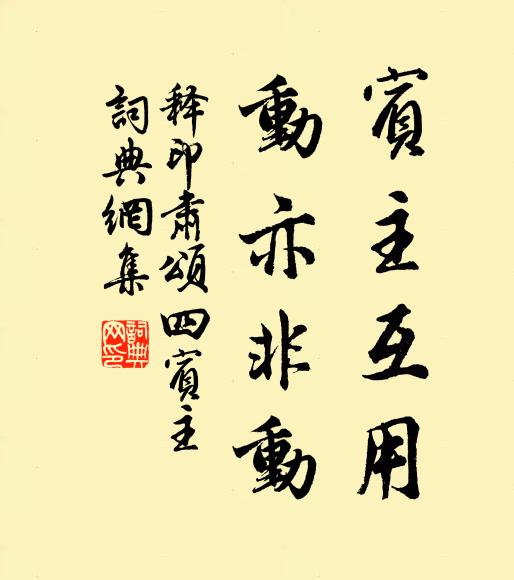 賓主互用
動亦非動
释印肅頌四賓主
詞典網集
詞典网印